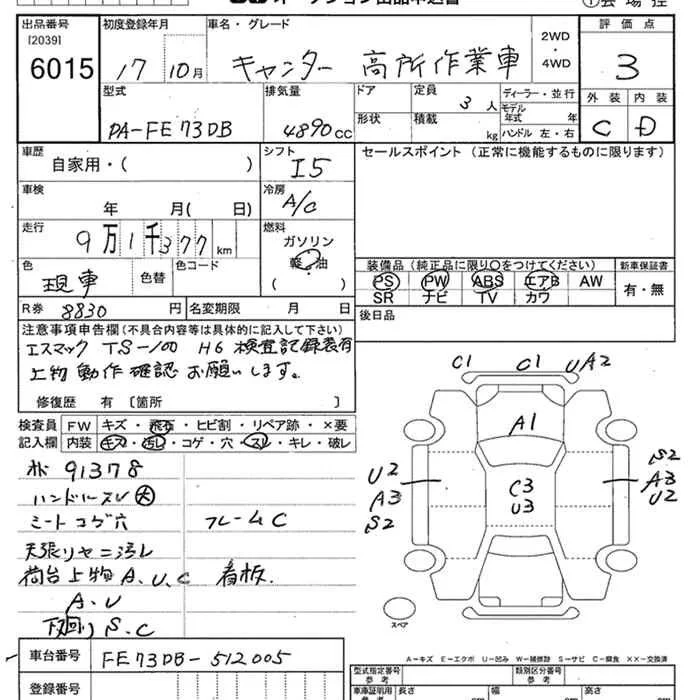 オークション出品申込書
①会場控
出品番号 初度登録年月 車名・グレード 評価点
[2039]
6015 17 10月 キャンター 高所作業車 2WD・4WD 3
型式 排気量 ドア 定員 3人 ディーラー・並行 外装 内装
PA-FE73DB 4890cc 形状 積載 kg モデル年式 年 C D
ハンドル 左・右
車歴 シフト セールスポイント (正常に機能するものに限ります)
自家用・( ) I5
車検 冷房
年 月( 日) A/C
走行 燃料
9万1千377km ガソリン
軽・油
( )
色 色替 色コード
現車
装備品 (純正品に限り○をつけてください) 新車保証書
PS PW ABS エアB AW 有・無
SR ナビ TV カワ
R券 8830円 名変期限 月 日 後日品
注意事項申告欄 (不具合内容等は具体的に記入して下さい)
エスマック TS-100 H6 検査記録表有
上物動作確認お願いします。
修復歴 有 〔箇所 〕
検査員 FW キズ・飛石・ヒビ割・リペア跡・×要
記入欄 内装 キズ・汚レ・コゲ・穴・スレ・キレ・破レ
91378
ハンドルスレ大
シートコゲ穴 フレームC
天張リヤニ汚レ
荷台上物A、U、C 看板.
A、U
下回りS、C
C1 C1 UA2
A1
U2 A3 S2
C3 U3
S2 A3 U2
スペア
A−キズ E−エクボ U−凹み W−補修跡 S−サビ C−腐食 XX−交換済
車台番号 FE73DB-512005
登録番号
型式指定番号 参考 類別区分番号 参考
車庫証明用 参考 長さ 幅 高さ